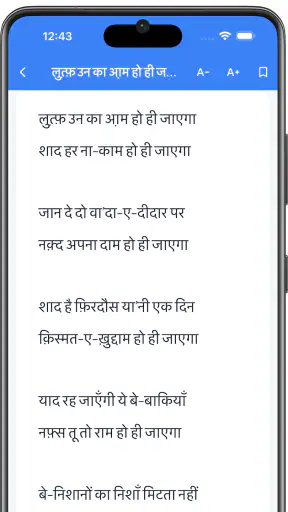 12:43
लुत्फ़ उन का आ़म हो ही ज...
A-
A+
लुत्फ़ उन का आ़म हो ही जाएगा
शाद हर ना-काम हो ही जाएगा
जान दे दो वा'दा-ए-दीदार पर
नक़्द अपना दाम हो ही जाएगा
शाद है फ़िरदौस या'नी एक दिन
क़िस्मत-ए-ख़ुद्दाम हो ही जाएगा
याद रह जाएँगी ये बे-बाकियाँ
नफ़्स तू तो राम हो ही जाएगा
बे-निशानों का निशाँ मिटता नहीं